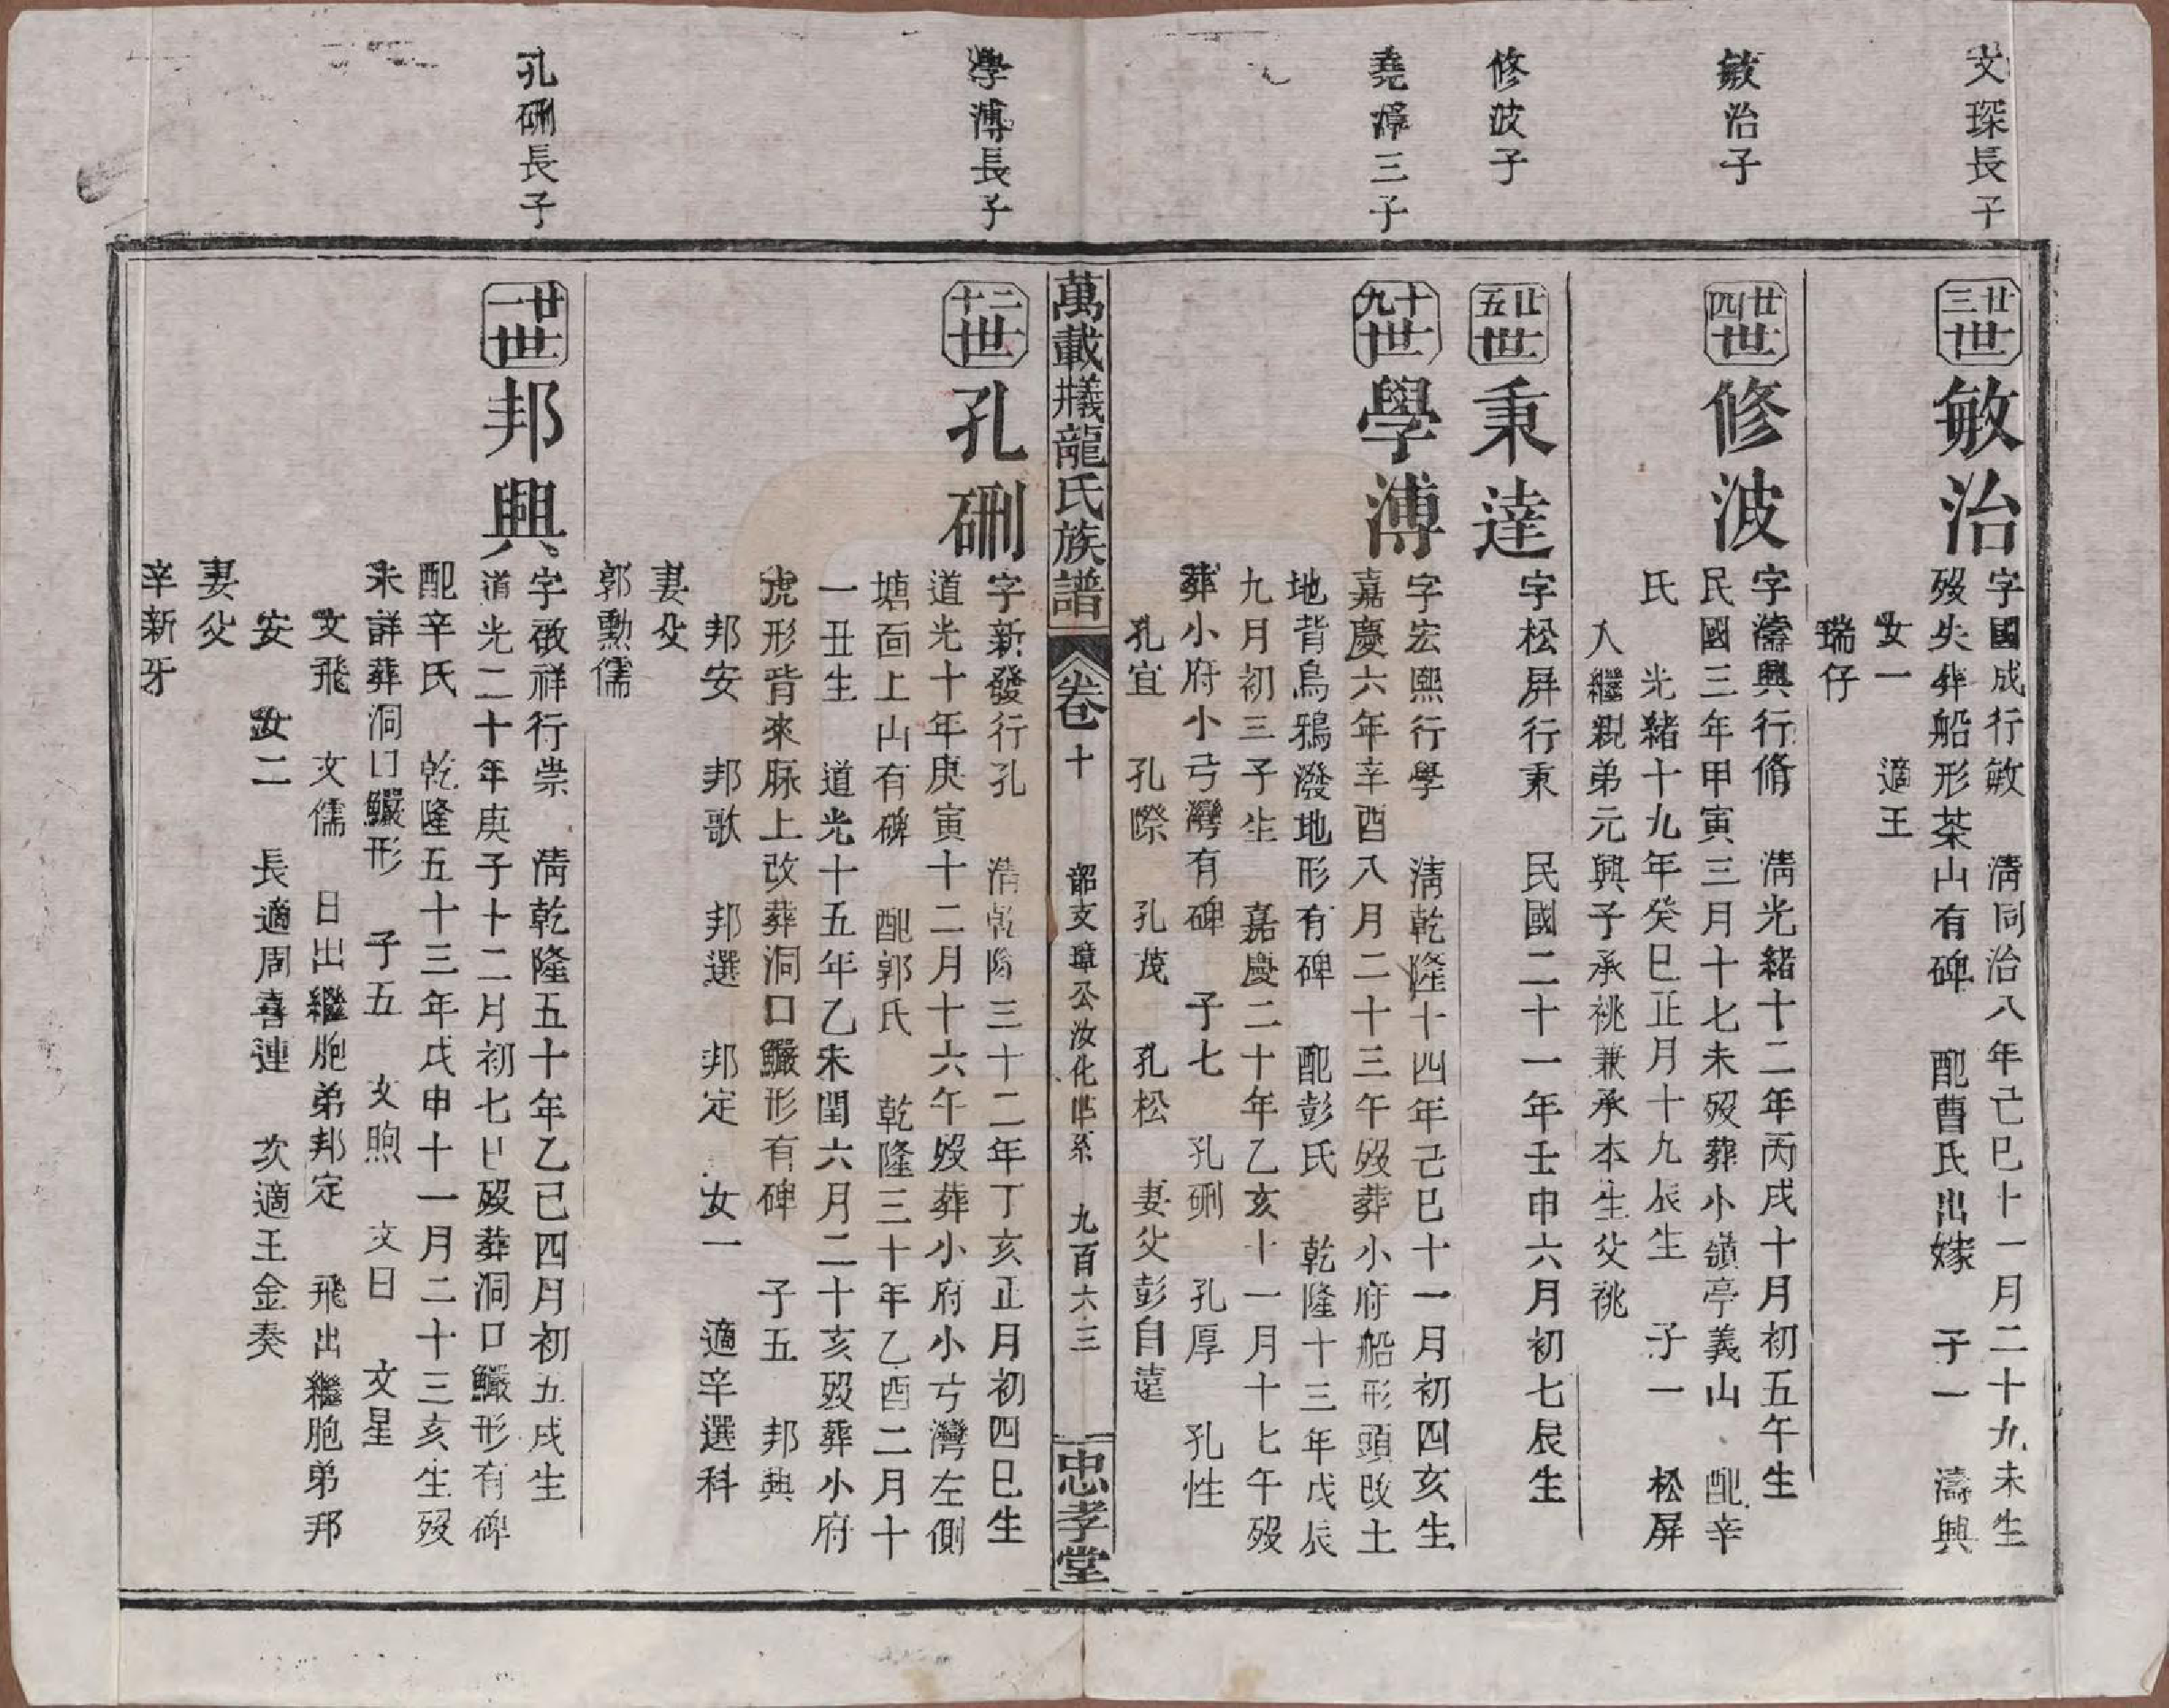 文琛長子
廿三世
敏治
字國成行敏　淸同治八年己巳十一月二十九未生
歿失葬船形茶山有碑　配曹氏出嫁　子一　濤興
女一　適王
瑞仔
敏治子
廿四世
修波
字濤興行脩　淸光緒十二年丙戌十月初五午生
民國三年甲寅三月十七未歿葬小嶺亭義山　配辛
氏　光緒十九年癸巳正月十九辰生　子一　松屏
入繼親弟元興子承祧兼承本生父祧
修波子
廿五世
秉達
字松屏行秉　民國二十一年壬申六月初七辰生
堯　三子
十九世
學溥
字宏熙行學　淸乾隆十四年己巳十一月初四亥生
嘉慶六年辛酉八月二十三午歿葬小府船形頭改土
地背烏鴉潑地形有碑　配彭氏　乾隆十三年戊辰
九月初三子生　嘉慶二十年乙亥十一月十七午歿
葬小府小弓灣有碑　子七　孔硎　孔厚　孔性
孔宜　孔際　孔茂　孔松　妻父彭自遠
萬載㙜龍氏族譜　卷十　韶支璋公汝化世系　九百六三　忠孝堂
學溥長子
二十世
孔硎
字新發行孔　淸乾隆三十二年丁亥正月初四巳生
道光十年庚寅十二月十六午歿葬小府小弓灣左側
塘面上山有碑　配郭氏　乾隆三十年乙酉二月十
一丑生　道光十五年乙未閏六月二十亥歿葬小府
虎形背來脈上改葬洞口鱖形有碑　子五　邦興
邦安　邦歌　邦選　邦定　女一　適辛選科
妻父
郭勳儒
孔硎長子
廿一世
邦興
字啟祥行崇　淸乾隆五十年乙巳四月初五戌生
道光二十年庚子十二月初七日歿葬洞口鱖形有碑
配辛氏　乾隆五十三年戊申十一月二十三亥生歿
未詳葬洞口鱖形　子五　文煦　文日　文星
文飛　文儒　日出繼胞弟邦定　飛出繼胞弟邦
安　女二　長適周喜連　次適王金奏
妻父
辛新牙